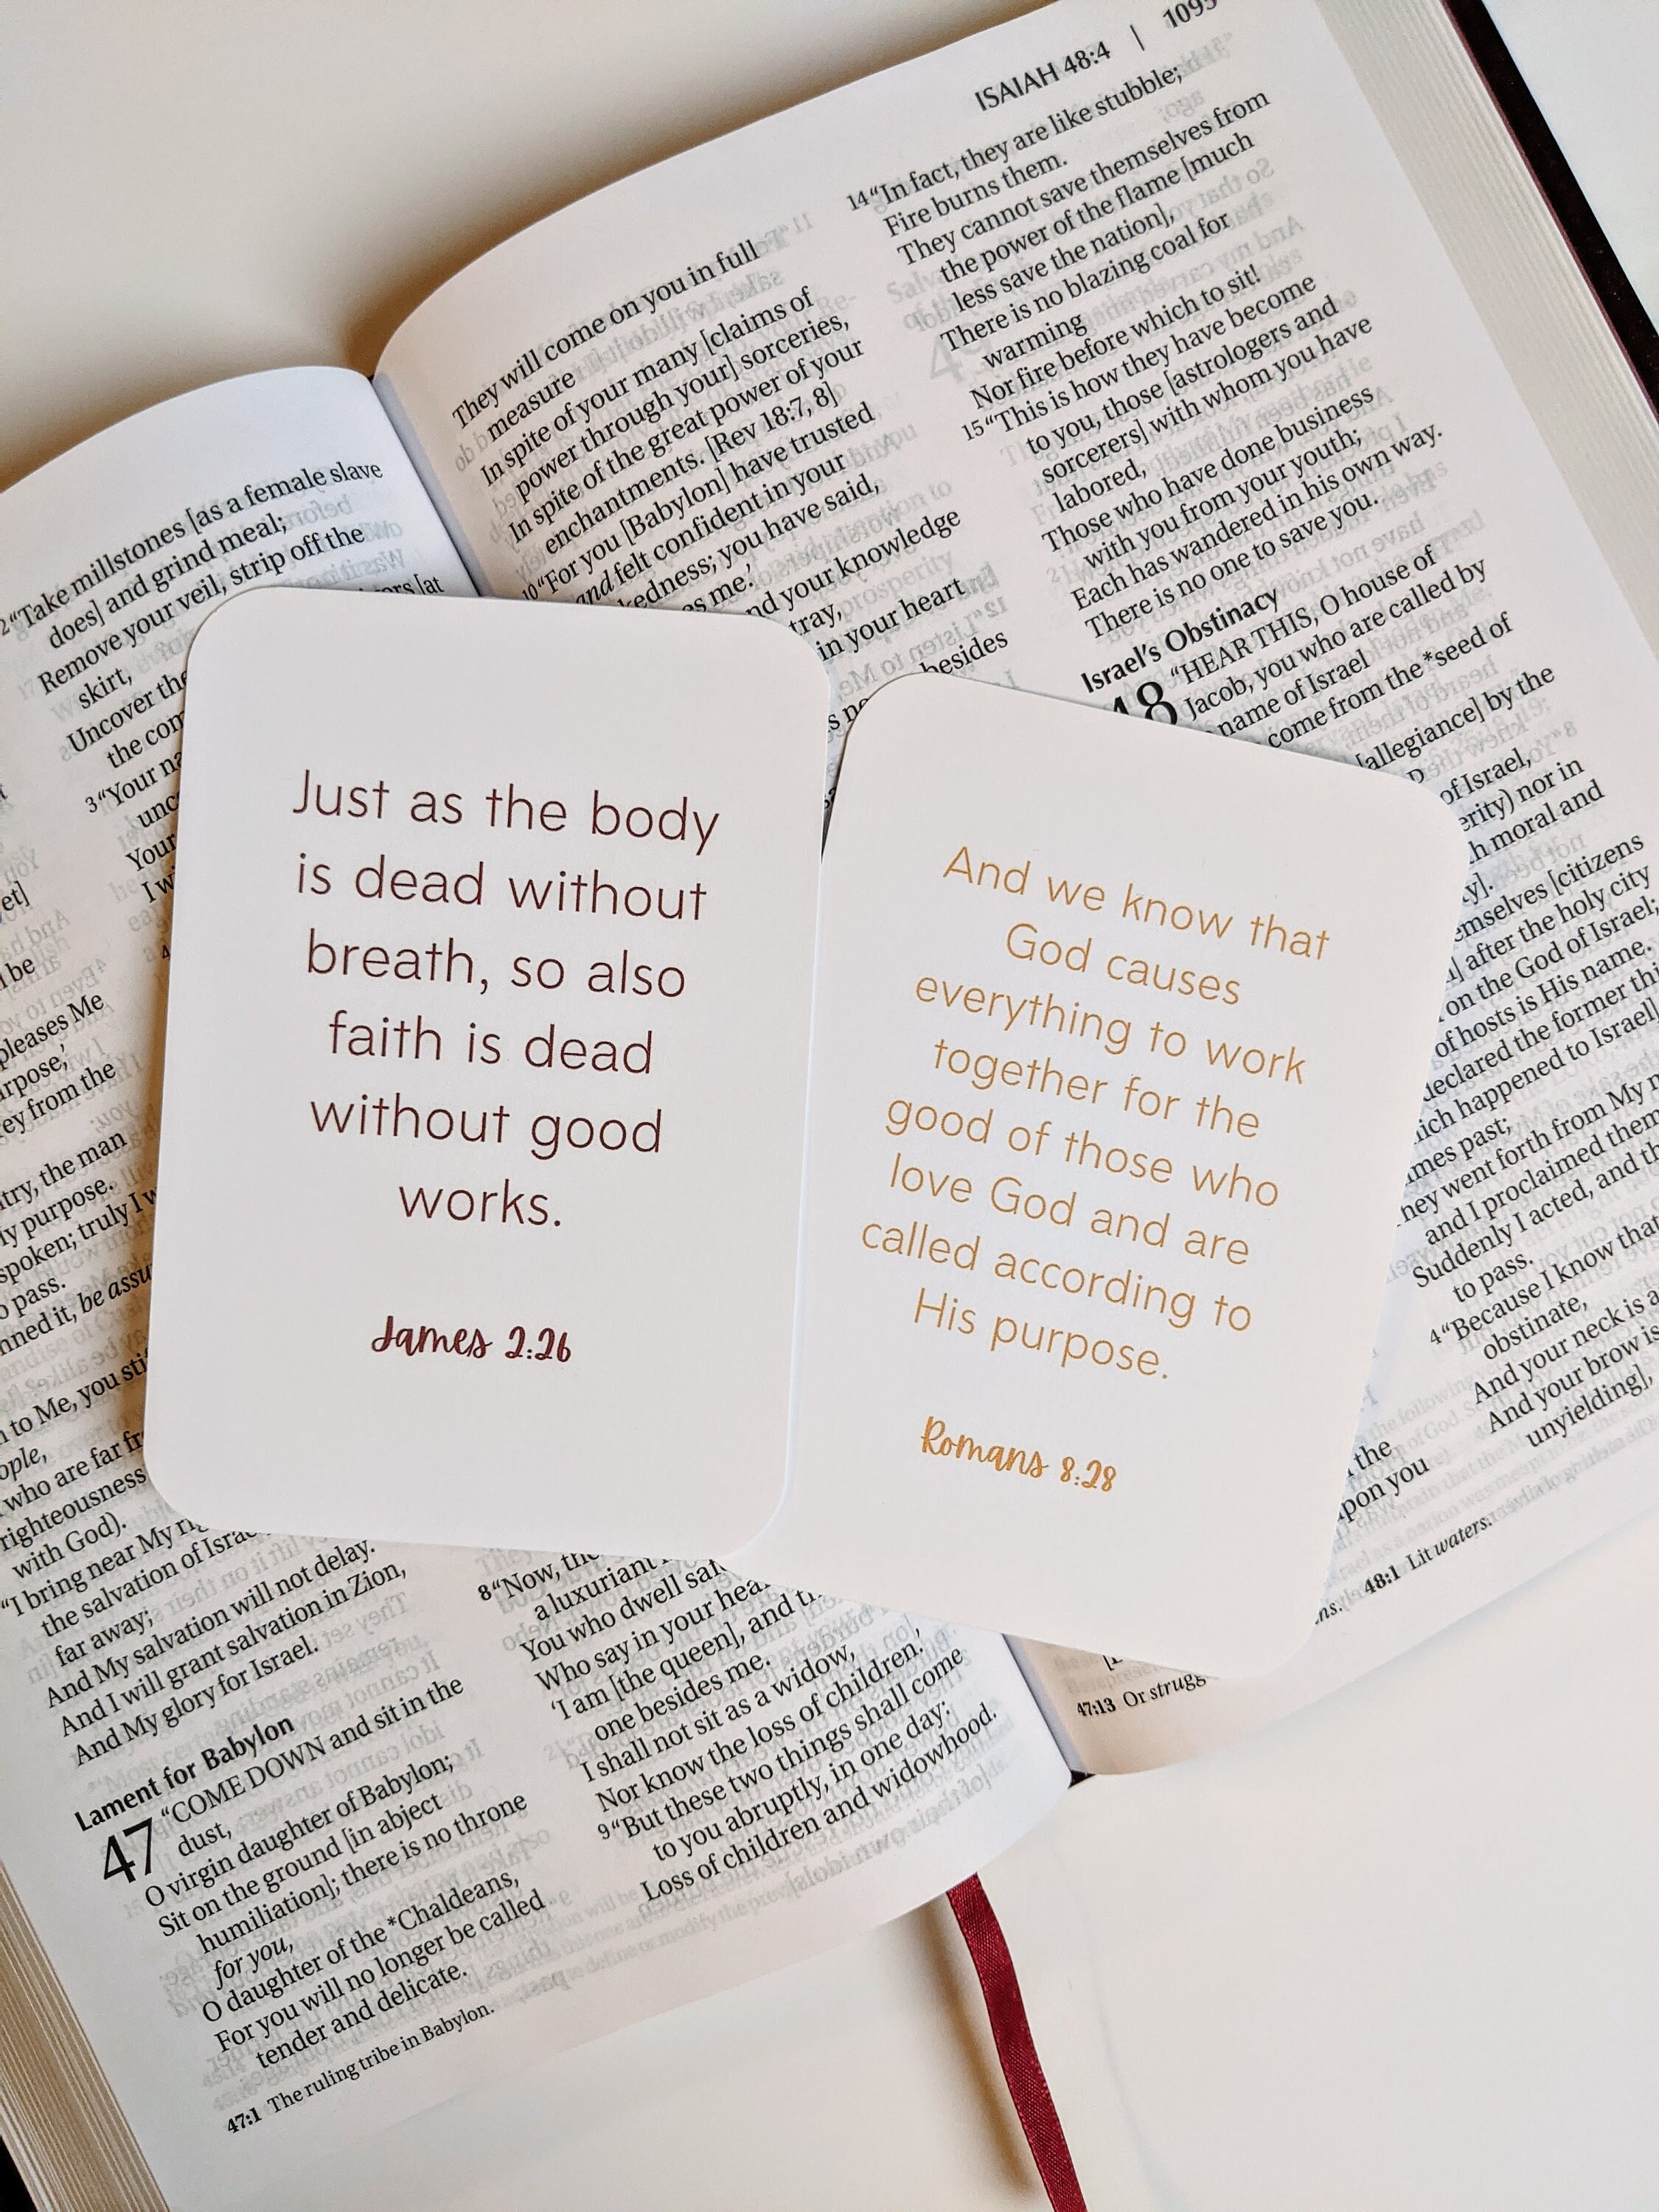 Just as the body
is dead without
breath, so also
faith is dead
without good
works.
James 2:26
And we know that
God causes
everything to work
together for the
good of those who
love God and are
called according to
His purpose.
Romans 8:28
pleases Me
ey from the
try, the man
purpose.
spoken; truly I
pass.
be
to Me, you
who are far
righteousness
with God).
"I bring near My
the salvation of
far away;
And My salvation will not delay.
And I will grant salvation in Zion,
And My glory for Israel.
Lament for Babylon
47 "COME DOWN and sit in the
dust,
O virgin daughter of Babylon;
Sit on the ground [in abject
humiliation]; there is no throne
for you,
O daughter of the *Chaldeans,
For you will no longer be called
tender and delicate.
47:1 The ruling tribe in Babylon.
2 "Take millstones [as a female slave
does] and grind meal;
Remove your veil, strip off the
skirt,
Uncover the
the
3 "Your
Your
I
8 "Now,
a luxuriant
You who dwell
Who say in your
'I am [the queen], and
one besides me.
I shall not sit as a widow,
Nor know the loss of children.'
9 "But these two things shall come
to you abruptly, in one day:
Loss of children and widowhood.
ISAIAH 48:4 |
They will come on you in full
measure
In spite of your many [claims of
power through your] sorceries,
In spite of the great power of your
enchantments. [Rev 18:7, 8]
10 "For you [Babylon] have trusted
and felt confident in your
you have said,
me.'
your knowledge
in your heart
besides
14 "In fact, they are like stubble;
Fire burns them.
They cannot save themselves from
the power of the flame [much
less save the nation],
There is no blazing coal for
warming
Nor fire before which to sit!
15 "This is how they have become
to you, those [astrologers and
sorcerers] with whom you have
labored,
Those who have done business
with you from your youth;
Each has wandered in his own way.
There is no one to save you.
Israel's Obstinacy
48 "HEAR THIS, O house of
Jacob, you who are called by
name of Israel
come from the *seed of
[allegiance] by the
of Israel,
nor in
moral and
[citizens
after the holy city
on the God of Israel;
of hosts is His name.
declared the former
which happened to Israel]
past;
They went forth from My
and I proclaimed them
Suddenly I acted, and
to pass.
4 "Because I know that
obstinate,
And your neck is
And your brow is
unyielding],
the
upon you
47:13 Or
48:1 Lit waters.